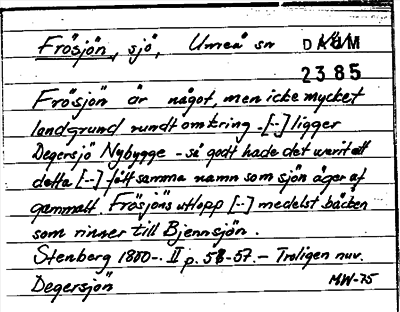 Frösjön, sjö, Umeå sn DAUM
2385
Frösjön är något, men icke mycket
landgrund rundt omkring -[--] ligger
Degersjö Nybygge - så godt hade det warit att
detta [--] fått samma namn som sjön äger af
gammalt. Frösjöns utlopp [--] medelst bäcken
som rinner till Bjennsjön.
Stenberg 1800-. II p. 56-57. - Troligen nuv.
Degersjön MW-75